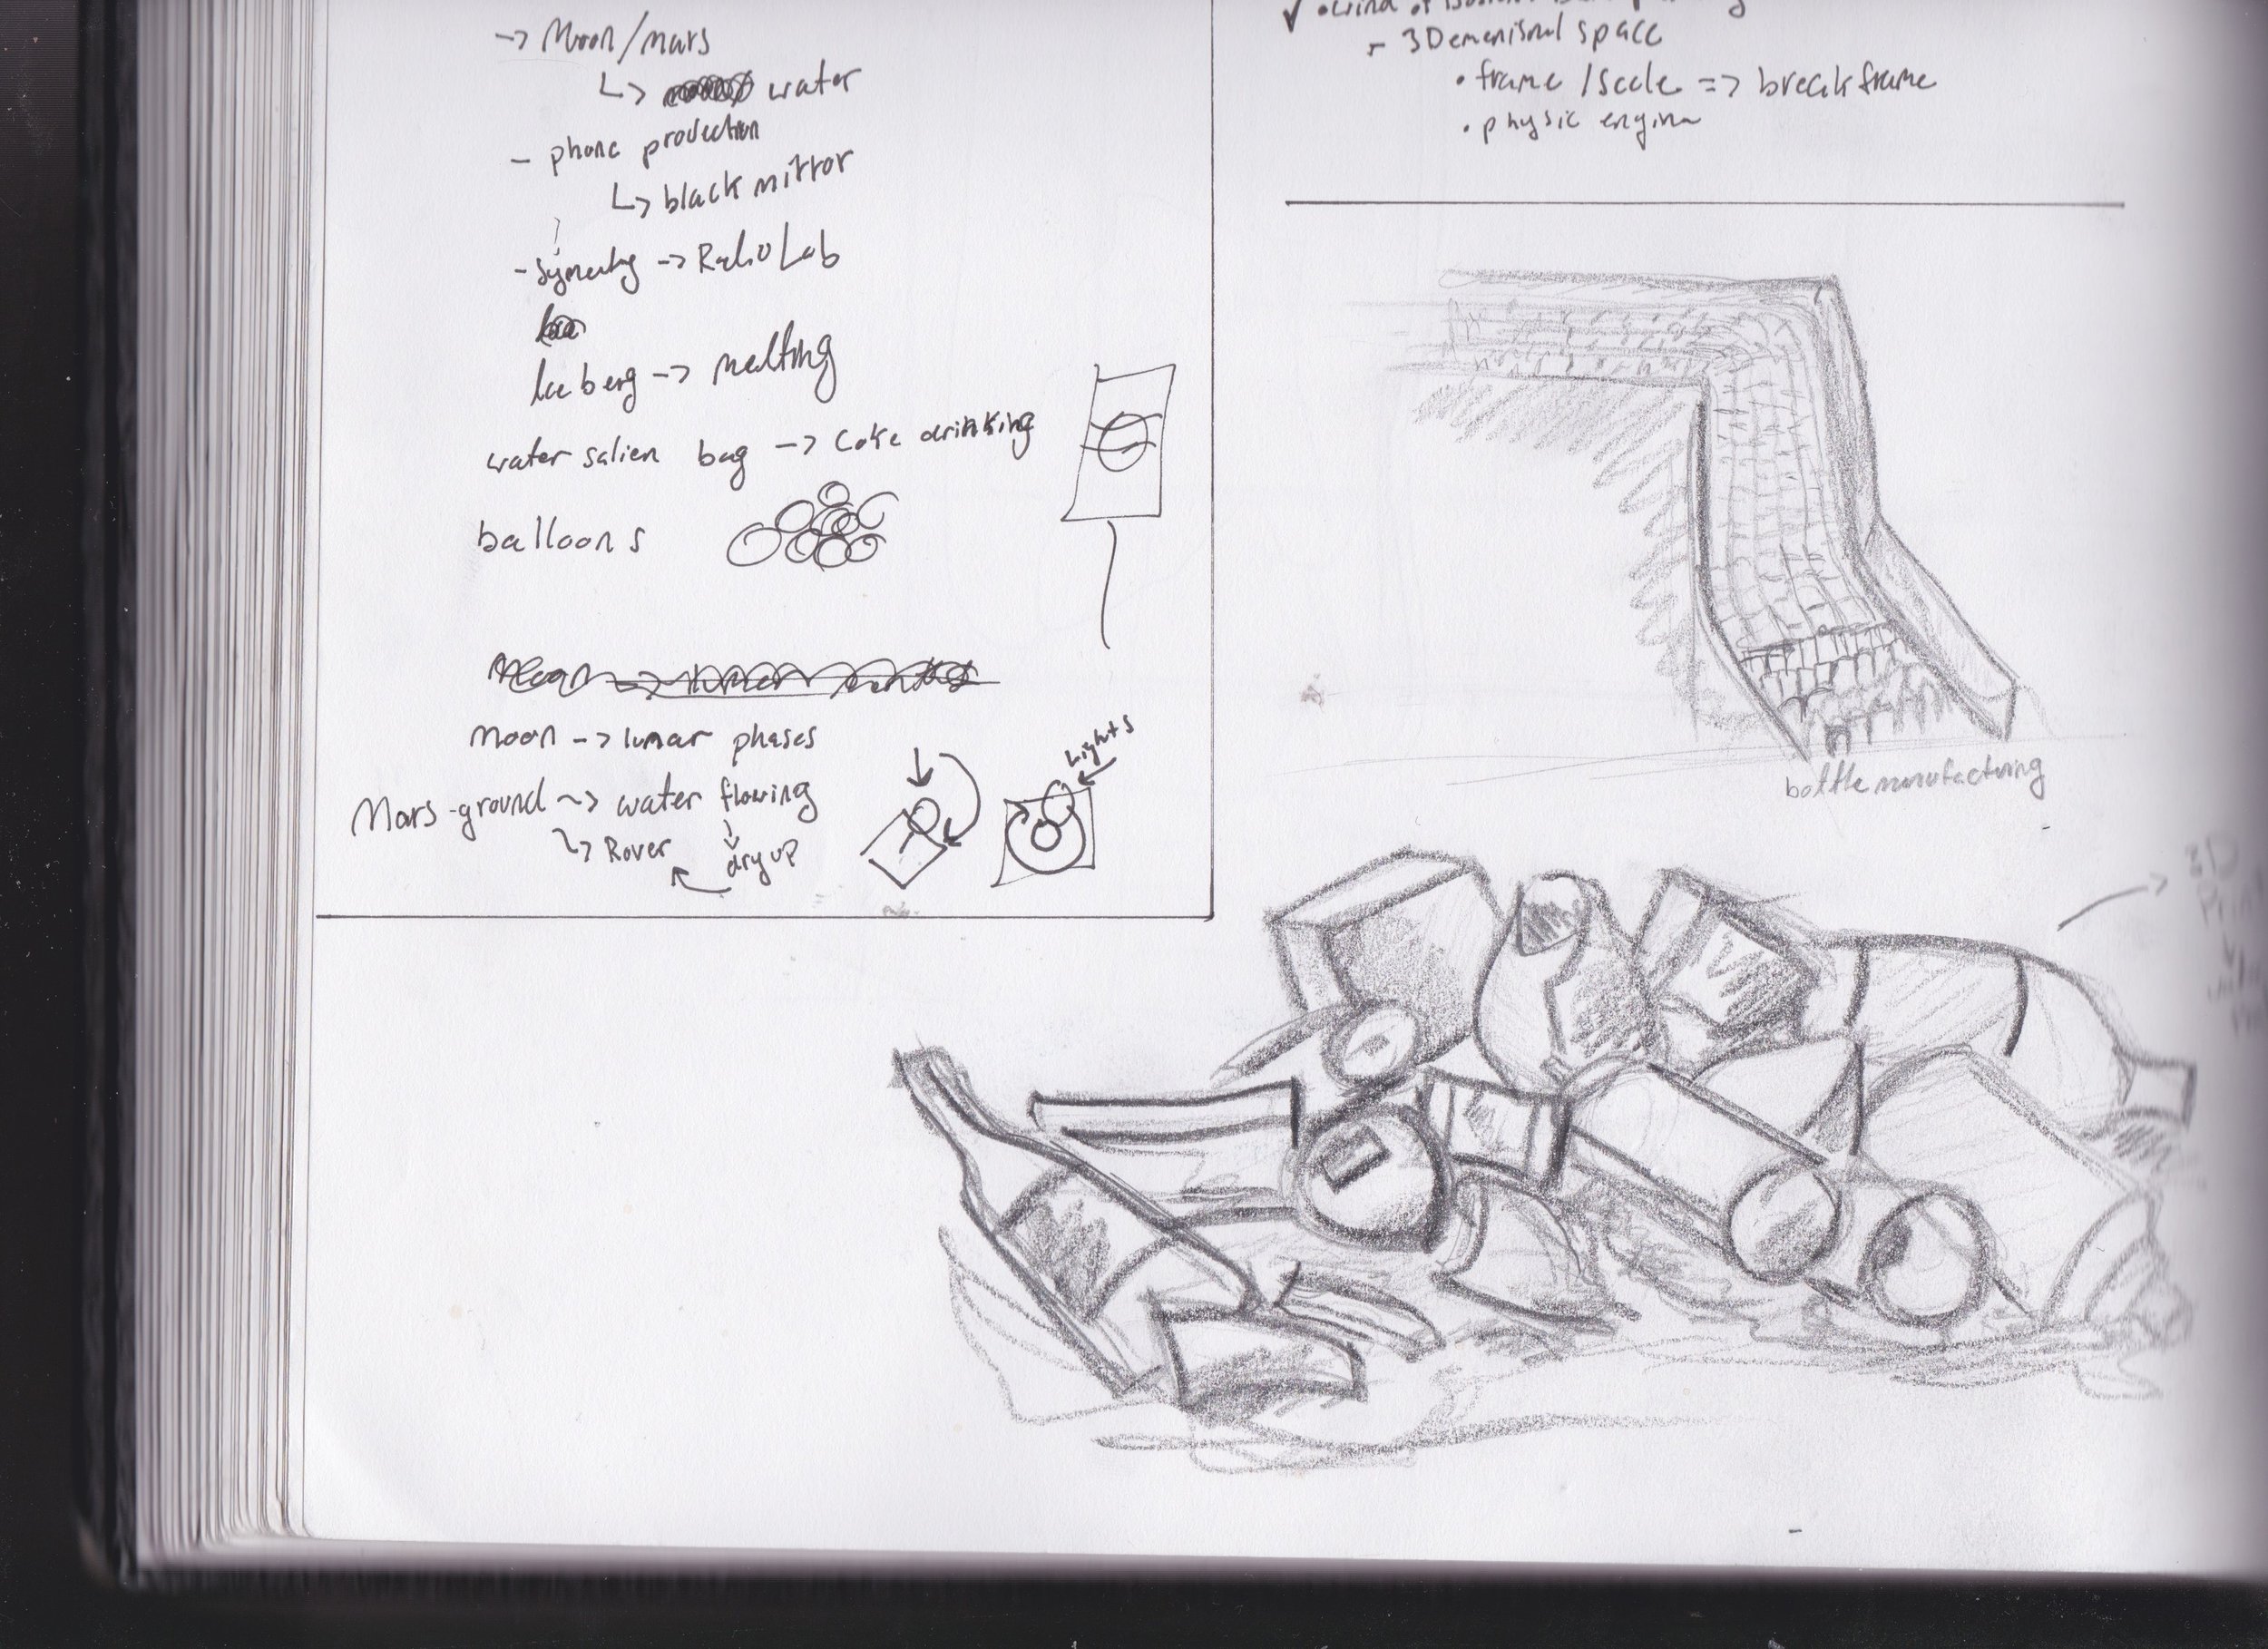 -> Moon/mars
↳ water
- phone production
↳ black mirror
- symentry -> RadioLab
Ice berg -> melting
water salien bag -> Coke drinking
balloons
moon -> lunar phases
Mars-ground ~> water flowing
↳ Rover
dry up
Lights
- 3Demenisnal space
• frame /scale => break frame
• physic engine
bottle manufacturing
3D